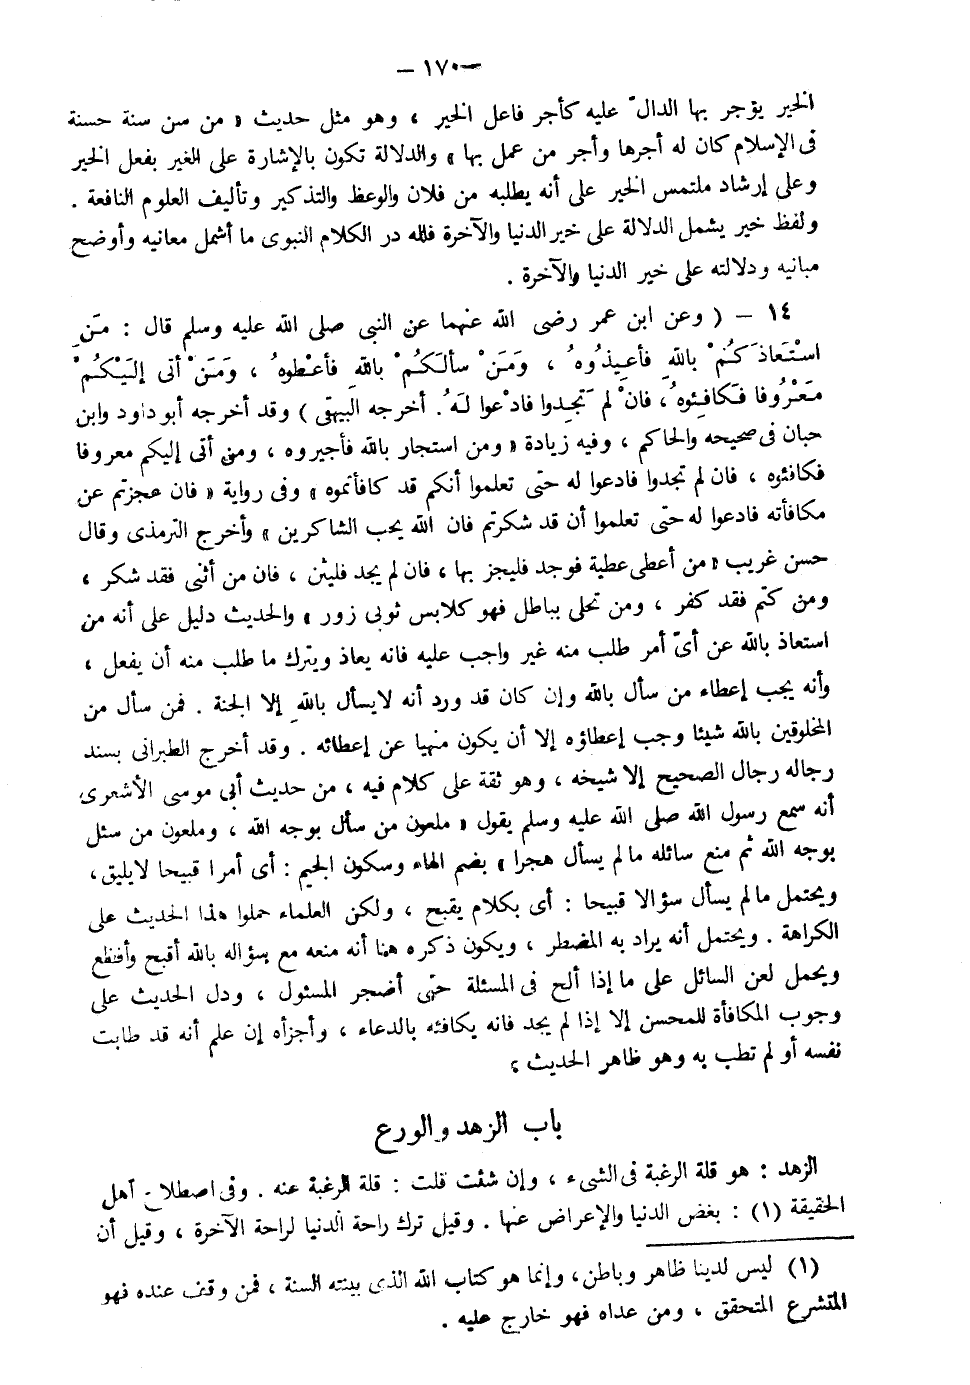 — ١٧٠ —
الخير يؤجر بها الدالّ عليه كأجر فاعل الخير ، وهو مثل حديث « من سن سنة حسنة
فى الإسلام كان له أجرها وأجر من عمل بها » والدلالة تكون بالإشارة على الغير بفعل الخير
وعلى إرشاد ملتمس الخير على أنه يطلبه من فلان والوعظ والتذكير وتأليف العلوم النافعة .
ولفظ خير يشمل الدلالة على خير الدنيا والآخرة فلله در الكلام النبوى ما أشمل معانيه وأوضح
مبانيه ودلالته على خير الدنيا والآخرة .
١٤ – ( وعن ابن عمر رضى الله عنهما عن النبى صلى الله عليه وسلم قال : مَنِ
اسْتَعَاذَكُمْ بالله فأعِيذُوهُ ، وَمَنْ سألَكُمْ باللهِ فأعْطُوهُ ، وَمَنْ أتى إلَيْكُمْ
مَعْرُوفا فَكافِئوهُ ، فانْ لم تَجِدوا فادْعوا لَهُ. أخرجه البيهقى ) وقد أخرجه أبو داود وابن
حبان فى صحيحه والحاكم ، وفيه زيادة « ومن استجار بالله فأجيروه ، ومن أتى إليكم معروفا
فكافئوه ، فان لم تجدوا فادعوا له حتى تعلموا أنكم قد كافأتموه » وفى رواية « فان عجزتم عن
مكافأته فادعوا له حتى تعلموا أن قد شكرتم فان الله يحب الشاكرين » وأخرج الترمذى وقال
حسن غريب « من أعطى عطية فوجد فليجز بها ، فان لم يجد فليثن ، فان من أثنى فقد شكر ،
ومن كتم فقد كفر ، ومن تحلى بباطل فهو كلابس ثوبى زور » والحديث دليل على أنه من
استعاذ بالله عن أىّ أمر طلب منه غير واجب عليه فانه يعاذ ويترك ما طلب منه أن يفعل ،
وأنه يجب إعطاء من سأل بالله وإن كان قد ورد أنه لايسأل باللهِ إلا الجنة . فمن سأل من
المخلوقين بالله شيئا وجب إعطاؤه إلا أن يكون منهيا عن إعطائه . وقد أخرج الطبرانى بسند
رجاله رجال الصحيح إلا شيخه ، وهو ثقة على كلام فيه ، من حديث أبى موسى الأشعرى
أنه سمع رسول الله صلى الله عليه وسلم يقول « ملعون من سأل بوجه الله ، وملعون من سئل
بوجه الله ثم منع سائله مالم يسأل هجرا » بضم الهاء وسكون الجيم : أى أمرا قبيحا لايليق ،
ويحتمل مالم يسأل سؤالا قبيحا : أى بكلام يقبح ، ولكن العلماء حملوا هذا الحديث على
الكراهة . ويحتمل أنه يراد به المضطر ، ويكون ذكره هنا أنه منعه مع سؤاله بالله أقبح وأفظع
ويحمل لعن السائل على ما إذا ألح فى المسئلة حتى أضجر المسئول ، ودل الحديث على
وجوب المكافأة للمحسن إلا إذا لم يجد فانه يكافئه بالدعاء ، وأجزأه إن علم أنه قد طابت
نفسه أو لم تطب به وهو ظاهر الحديث ،
باب الزهد والورع
الزهد : هو قلة الرغبة فى الشىء ، وإن شئت قلت : قلة الرغبة عنه . وفى اصطلاح أهل
الحقيقة (١) : بغض الدنيا والإعراض عنها . وقيل ترك راحة الدنيا لراحة الآخرة ، وقيل أن
(١) ليس لدينا ظاهر وباطن، وإنما هو كتاب الله الذى بينته السنة ، فمن وقف عنده فهو
المتشرع المتحقق ، ومن عداه فهو خارج عليه .